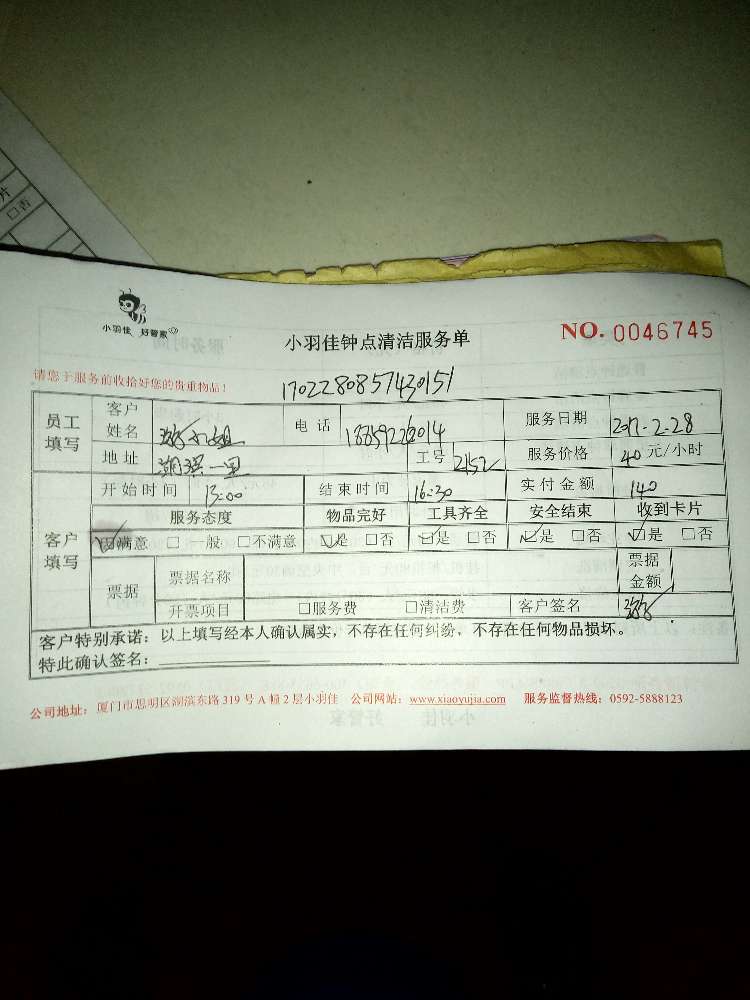 小羽佳 好管家
小羽佳钟点清洁服务单
NO. 0046745
请您于服务前收拾好您的贵重物品！
1702280857430151
员工填写 客户姓名 游小姐 电话 服务日期 2017-2-28
地址 湖滨一里 工号 2152 服务价格 40元/小时
开始时间 13:00 结束时间 16:30 实付金额 140
客户填写 服务态度 物品完好 工具齐全 安全结束 收到卡片
☑满意 □一般 □不满意 ☑是 □否 ☑是 □否 ☑是 □否 ☑是 □否
票据 票据名称 票据金额
开票项目 □服务费 □清洁费 客户签名
客户特别承诺：以上填写经本人确认属实，不存在任何纠纷，不存在任何物品损坏。
特此确认签名：
公司地址：厦门市思明区湖滨东路319号A幢2层小羽佳 公司网站：www.xiaoyujia.com 服务监督热线：0592-5888123